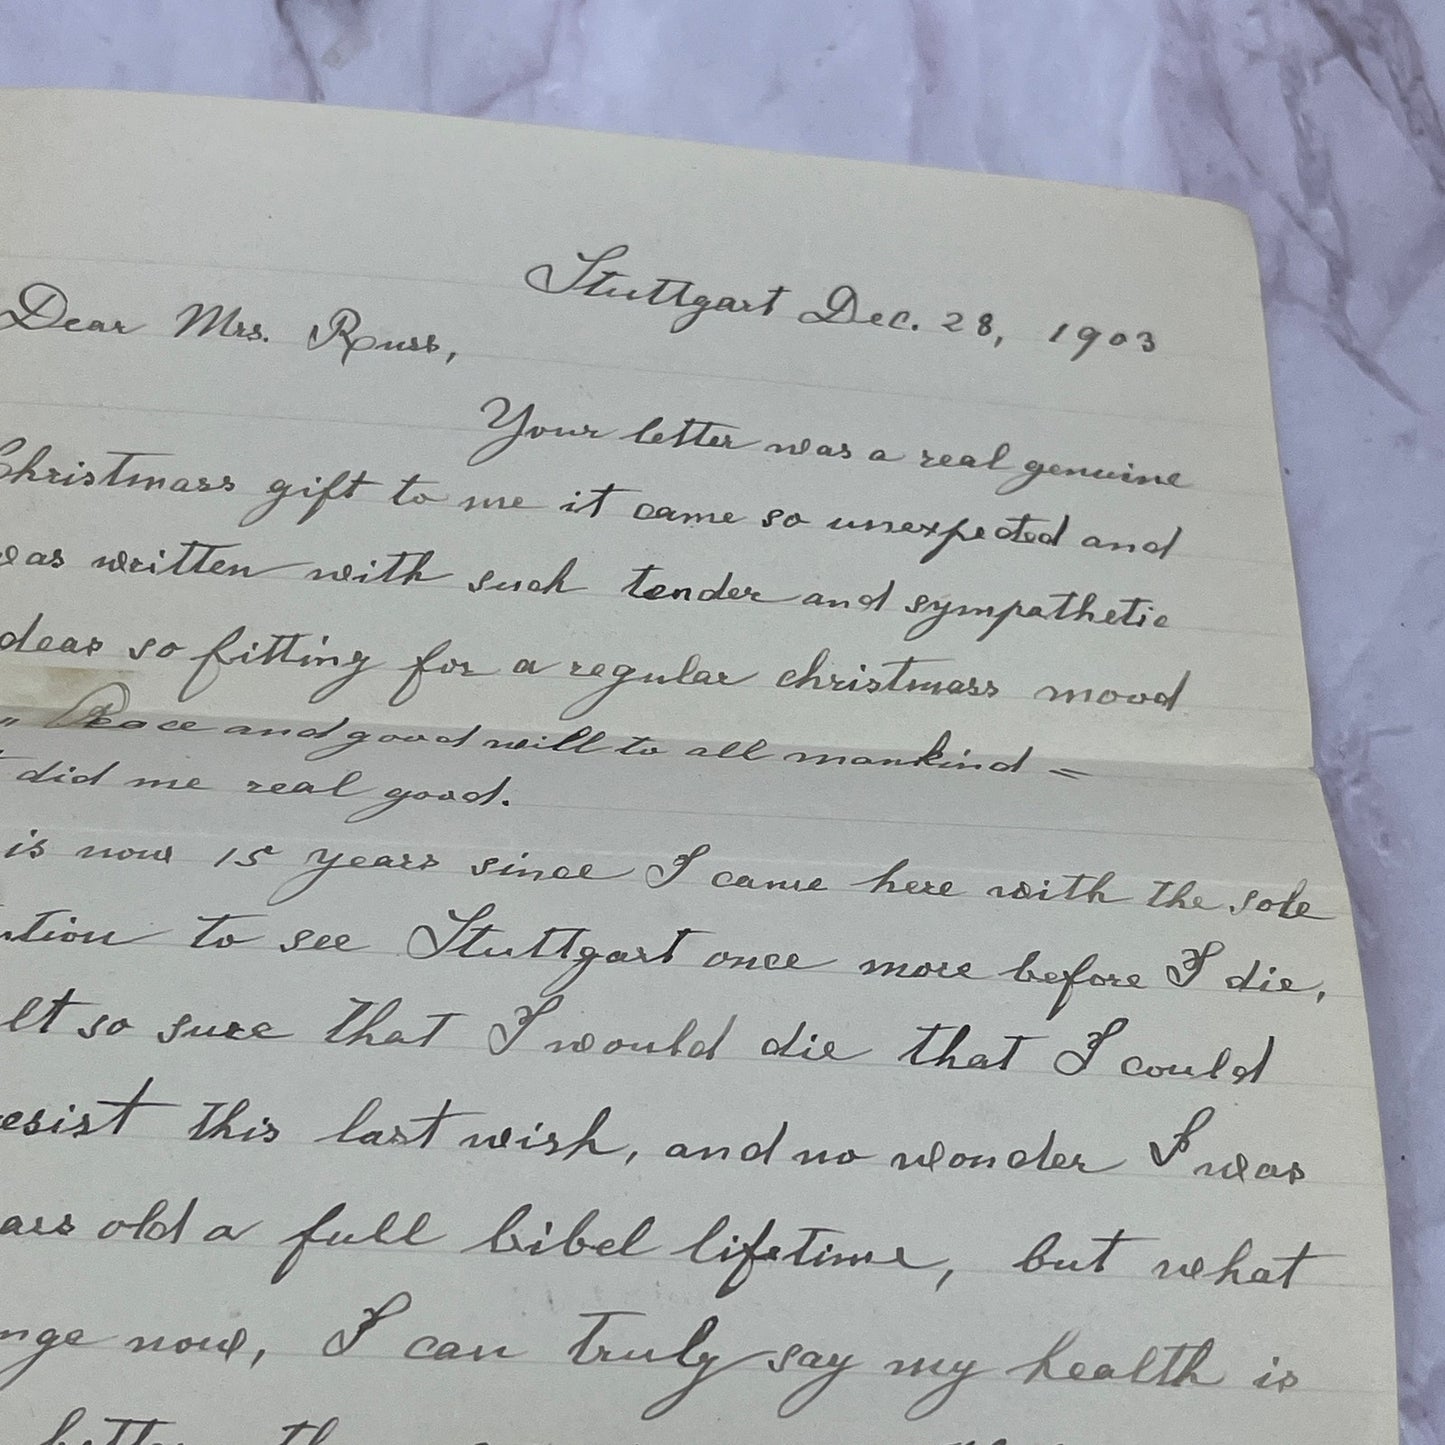 Stuttgart Dec. 28, 1903
Dear Mrs. Russ,
Your letter was a real genuine
Christmass gift to me it came so unexpected and
was written with such tender and sympathetic
deas so fitting for a regular christmass mood
„ Peace and good will to all mankind =
t did me real good.
is now 15 years since I came here with the sole
ntion to see Stuttgart once more before I die,
lt so sure that I would die that I could
resist this last wish, and no wonder I was
ars old a full bibel lifetime, but what
nge now, I can truly say my health is